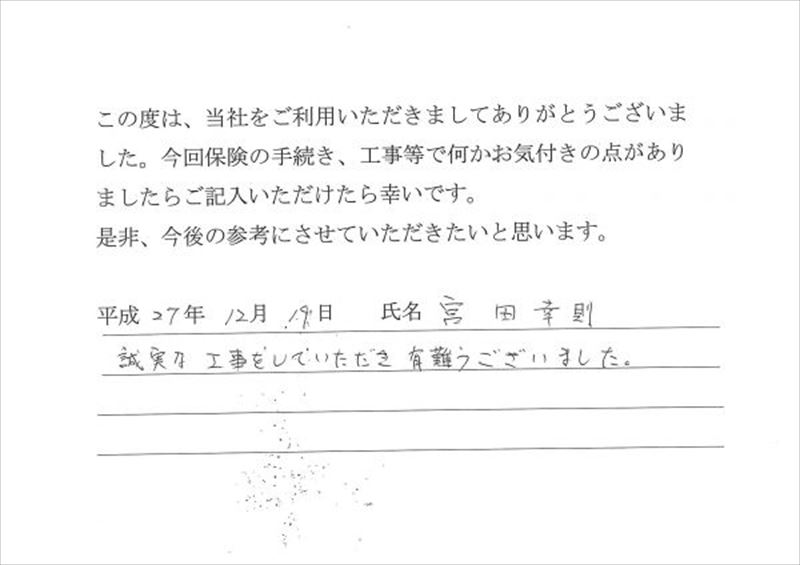 この度は、当社をご利用いただきましてありがとうございま
した。今回保険の手続き、工事等で何かお気付きの点があり
ましたらご記入いただけたら幸いです。
是非、今後の参考にさせていただきたいと思います。
平成 27年 12月 19日 氏名 宮田幸則
誠実な工事をしていただき有難うございました。